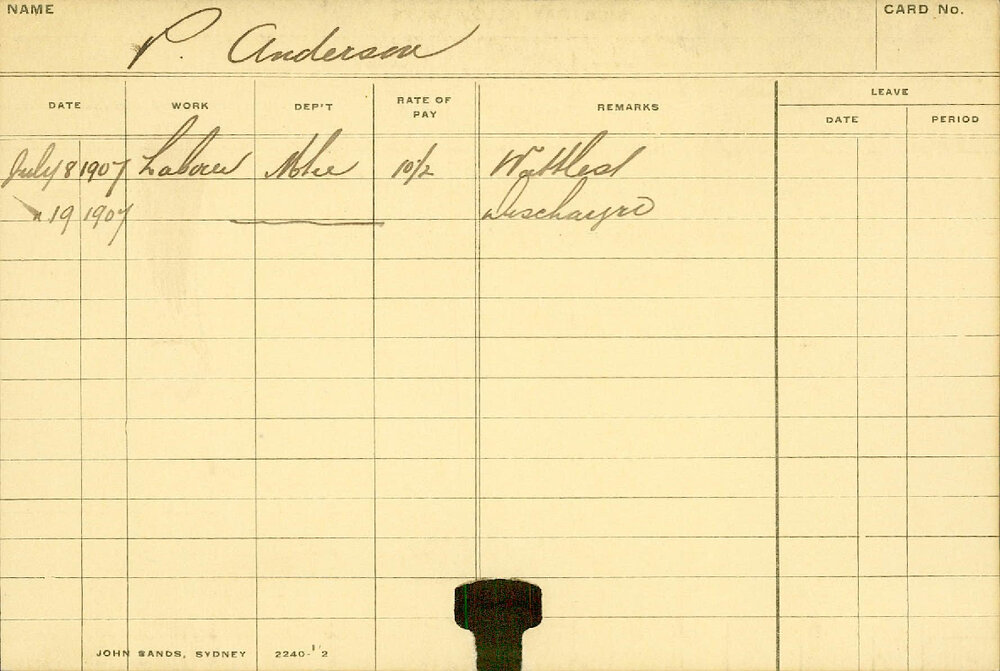 NAME P. Anderson CARD No.
DATE WORK DEP'T RATE OF PAY REMARKS LEAVE
DATE PERIOD
July 8 1907 Labourer 10/2
" 19 1907 Discharged
JOHN SANDS, SYDNEY 2240-